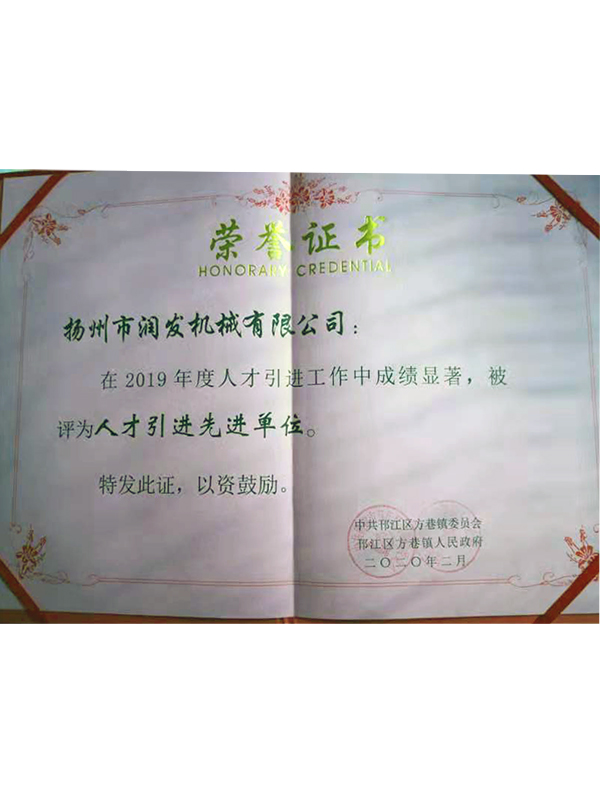 荣誉证书
HONORARY CREDENTIAL
扬州市润发机械有限公司：
在2019年度人才引进工作中成绩显著，被
评为人才引进先进单位。
特发此证，以资鼓励。
中共邗江区方巷镇委员会
邗江区方巷镇人民政府
二〇二〇年二月